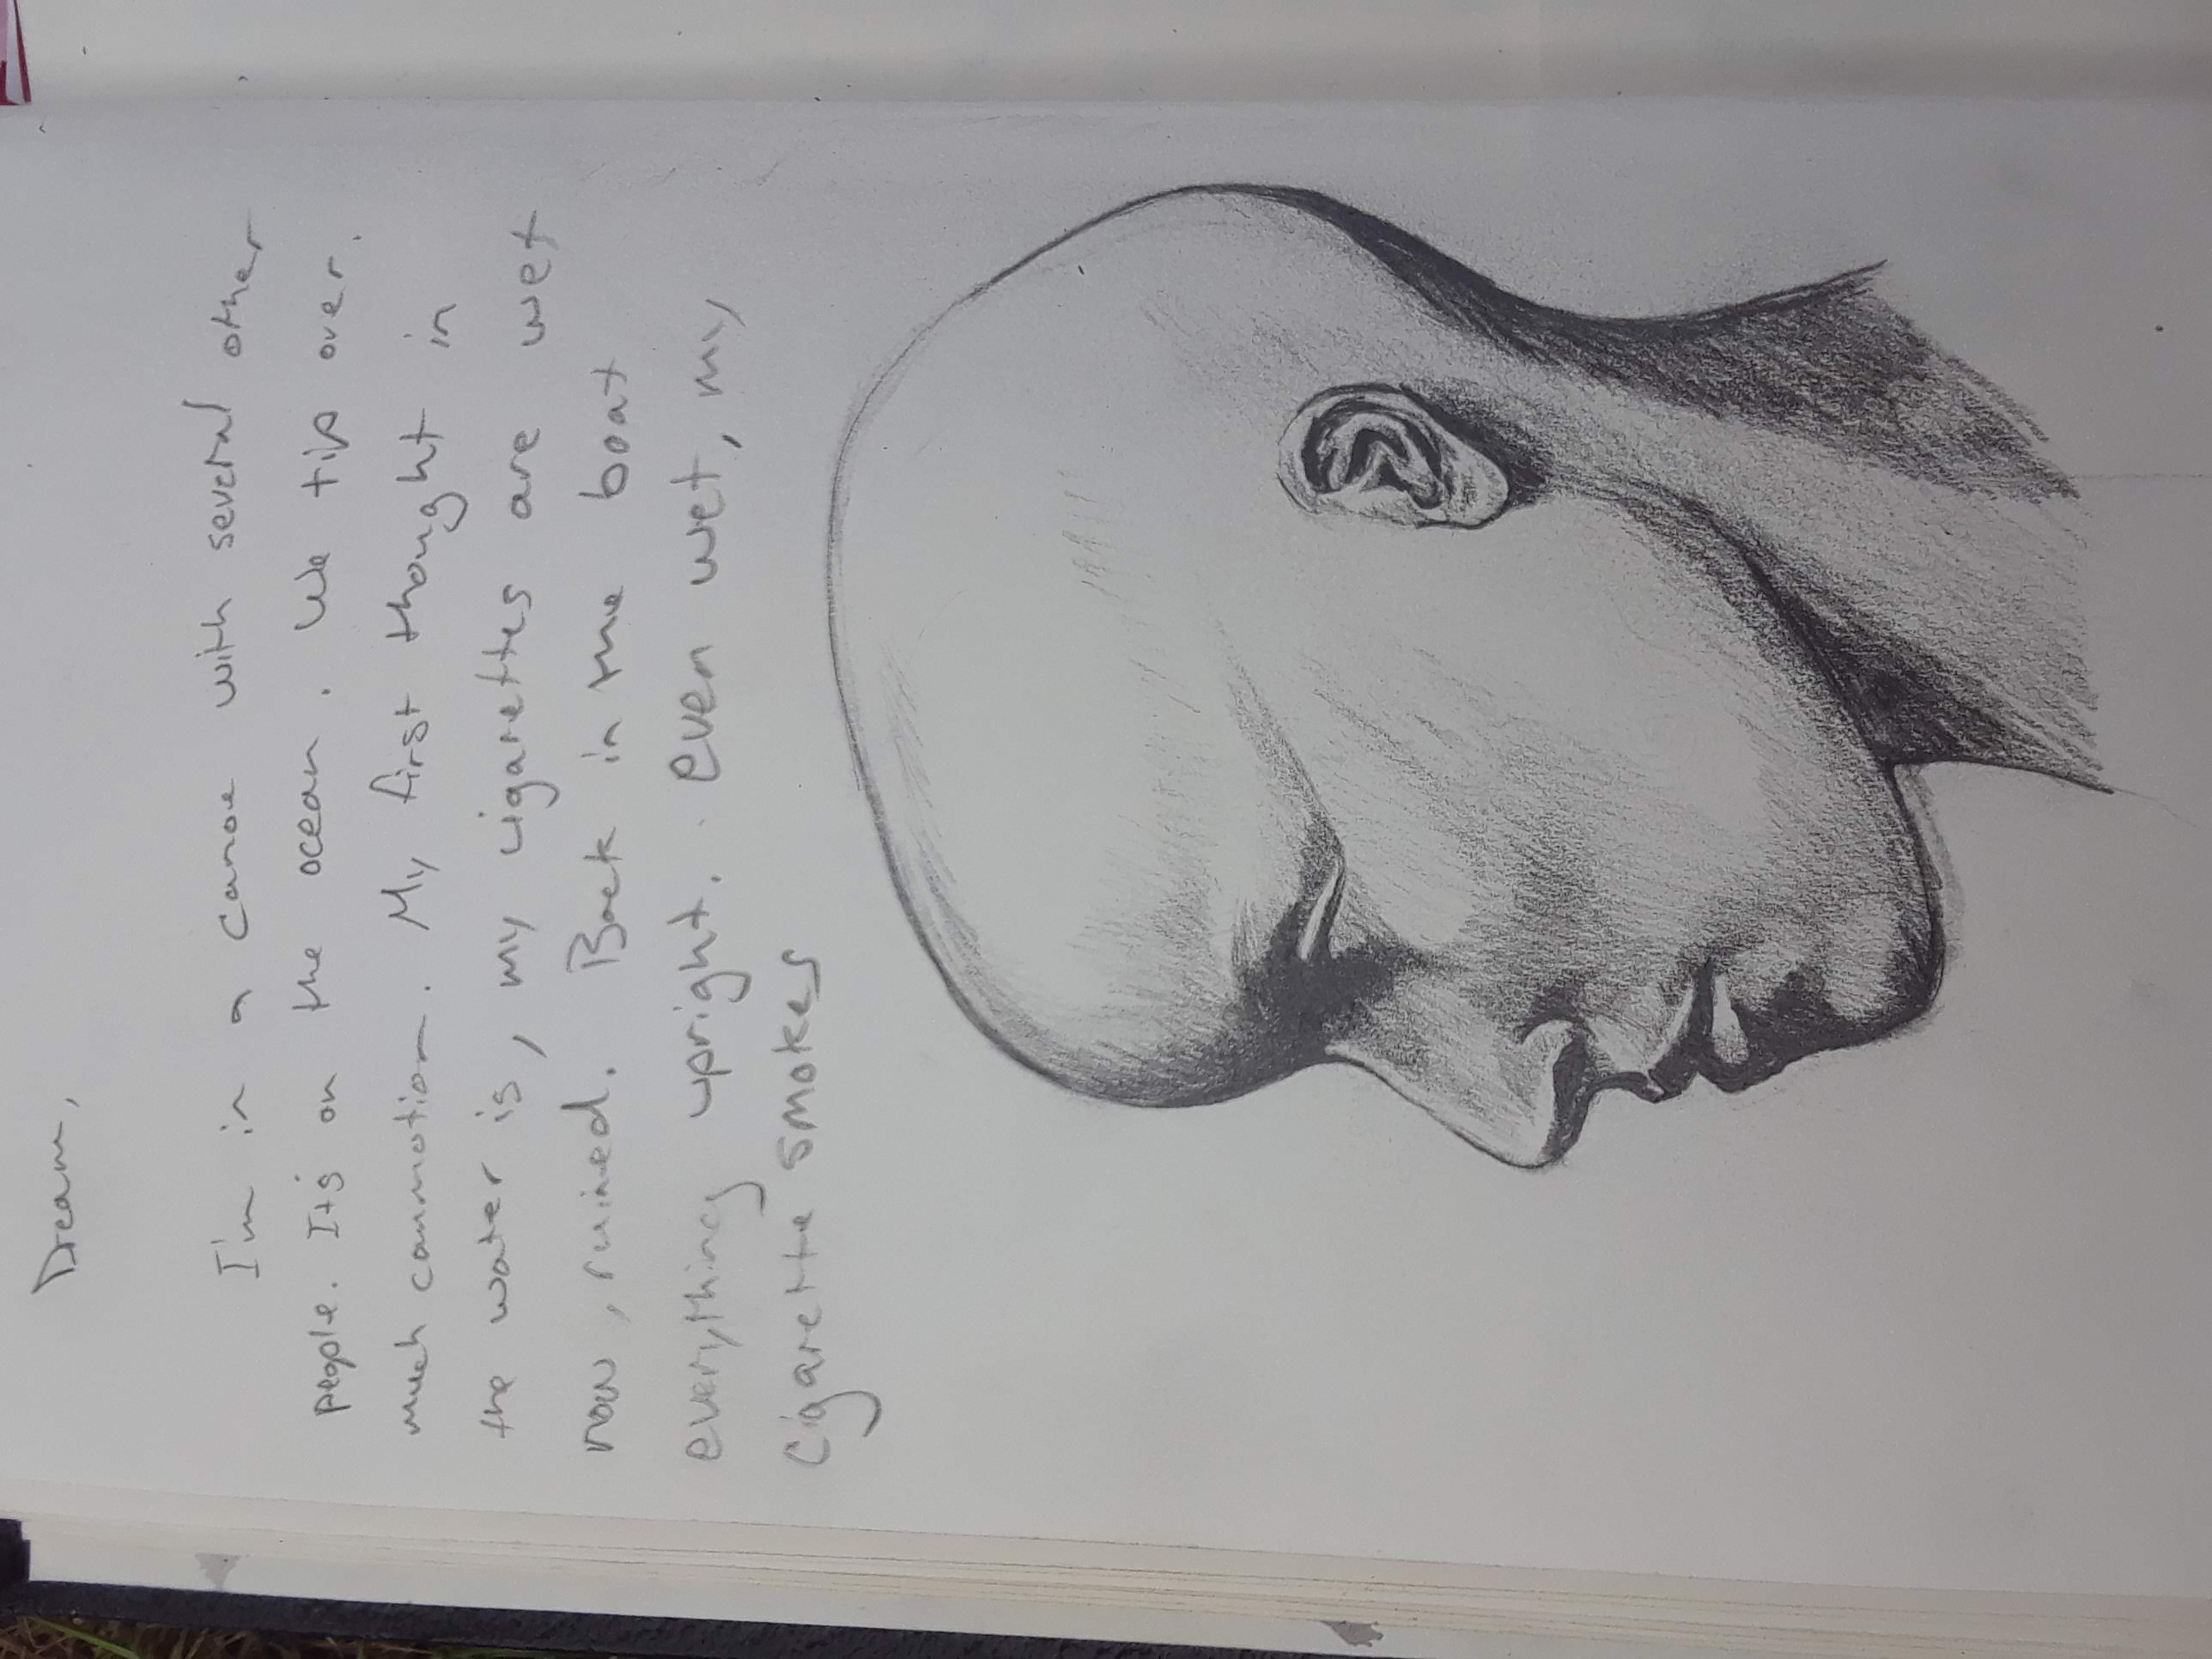 Dream,
I'm in a canoe with several other
people. It's on the ocean. We tip over.
much commotion. My first thought in
the water is, my cigarettes are wet
now, ruined. Back in the boat
everything upright. even wet, my
cigarette smokes